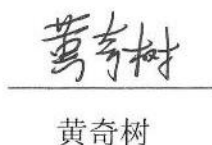 黄奇树
黄奇树